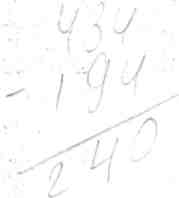 434
- 194
240